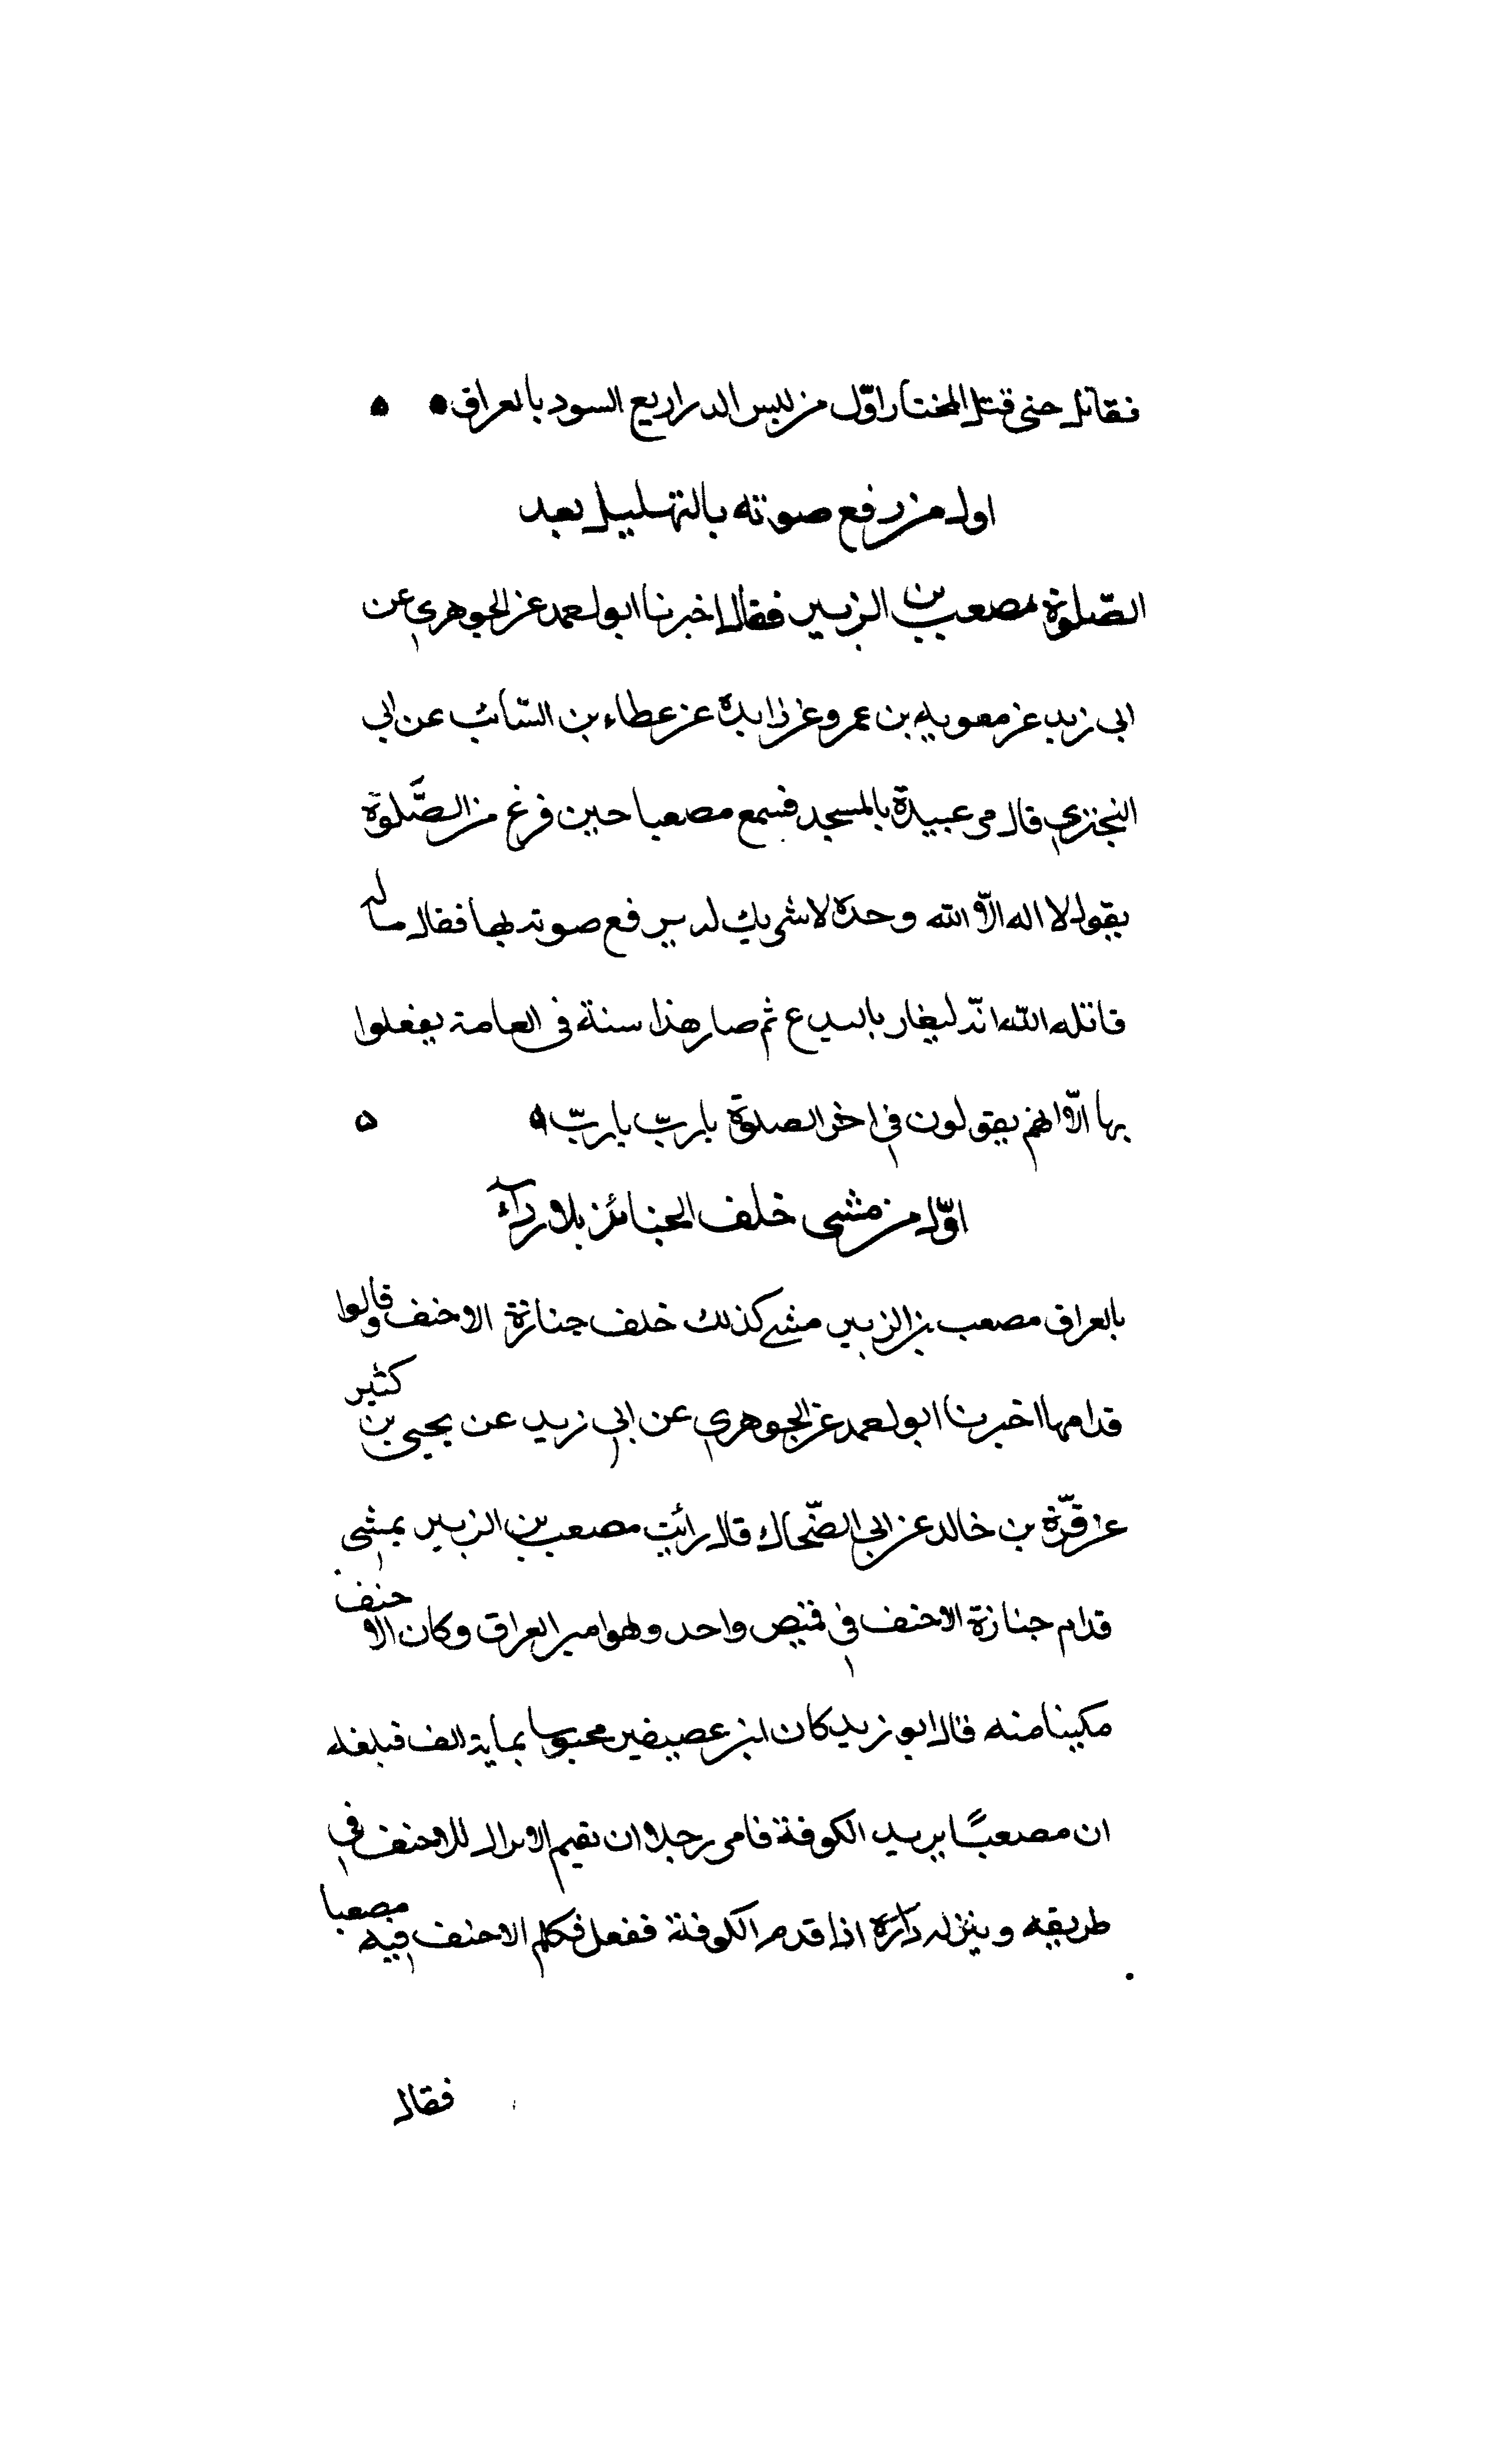 فقاتل حتى قتل المختار اوّل من لبس الدراريع السود بالعراق
اول من رفع صوته بالتهليل بعد
الصّلوة مصعب بن الزبير فقال اخبرنا ابو احمد عن الجوهري عن
ابى زيد عن معويه بن عمرو عن زايدة عن عطاء بن السّائب عن ابي
البخترى قال مر عبيدة بالمسجد فسمع مصعبا حين فرغ من الصَّلوة
يقول لا اله الّا الله وحده لا شريك له يرفع صوته بها فقال ماله
قاتله الله انّه ليغار بالبدع ثم صار هذا سنة فى العامة يفعلوا
بها الّا انهم يقولون في اخر الصلوة يا ربّ يا ربّ
اوّل من مشى خلف الجنائز بلا ردآء
بالعراق مصعب بن الزبير مشى كذلك خلف جنازة الاحنف وقالوا
قدامها اخبرنا ابو احمد عن الجوهري عن ابي زيد عن يحيى بن كثير
عن قرّة بن خالد عن ابي الضّحاك قال رأيت مصعب بن الزبير يمشي
قدام جنازة الاحنف في قميص واحد وهو امير العراق وكان الاحنف
مكينا منه قال ابو زيد كان ابن محبوسا بماية الف فبلغه
ان مصعبًا يريد الكوفة فامر رجلا ان يقيم الانزال للاحنف في
طريقه وينزله داره اذا قدم الكوفة ففعل فكلم الاحنف فيه مصعبا
فقال